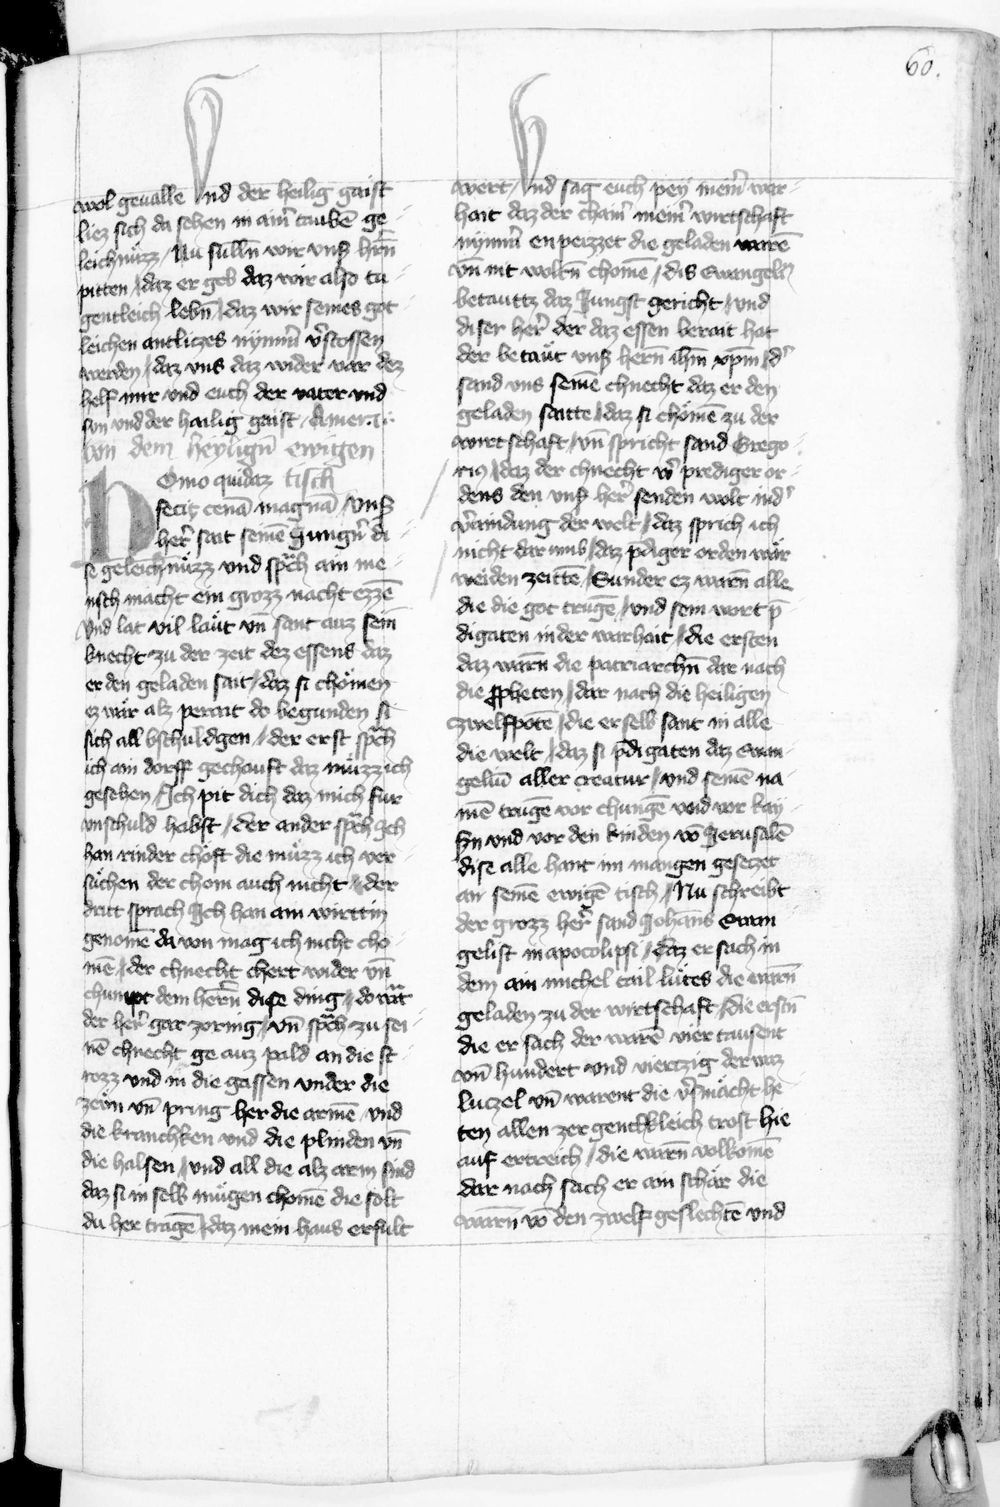 60.
wol geualle Vnd der heilig gaist
liez sich da sehen in aim̄ taubē ge
leichnuͤzz / Nu sulln̄ wir vnsṣ hrn̄
pitten / daz er geb daz wir also tu
gentleich lebn̄ / daz wir seines got
leichen antliczes nymm̄ v̄stossen
werden / daz vns daz wider var dez
helf mir vnd euch der vater vnd
sun vnd der hailig gaist / Amen
Von dem heylign̄ ewigen
Homo quidaz tisch
fecit cenā magnā / Vnsṣ
her̄ sait seinē Jungn̄ di
se geleichnuͤzz vnd spͣch ain me
nsch macht ein grozz nacht ezzē
Vnd lat vil laut vn̄ sant auz sein̄
knecht zu der zeit dez essens daz
er den geladen sait / daz si choͤmen
ez waͤr alz perait do begunden si
sich all bschuldigen / der erst spͣch
ich ain dorff gechauft daz muͤzz ich
gesehen / Ich pit dich daz mich fur
vnschuld habst / der ander spͣch Ich
han rinder choͤft die muͤzz ich ver
suͤchen der chom auch nicht / der
dritt sprach Ich han ain wirttin
genomē da von mag ich nicht cho
mē / der chnecht chert wider vn̄
chunt dem hern̄ dise ding / do wͣt
der her̄ gar zornig / vn̄ spͣch zu sei
nē chnecht ge auz pald an die st
rozz vnd in die gassen vnder die
zeuͤn vn̄ pring her die armē / vnd
die kranchken vnd die plinden vn̄
die halsen / vnd all die alz arm sind
daz si in selb muͤgen chomē die solt
du her tragē / daz mein haus erfult
wert / Vnd sag euch pey meim̄ war
hait daz der chaim̄ meim̄ wirtschaft
nymm̄ enpeizzet die geladen warē
vn̄ nit woltn̄ chomē / dis Ewangeli
betauttz daz Jungst gericht / vnd
diser her̄ der daz essen berait hat
der betauͤt vnsṣ hern̄ ihm̄ xpm̄ / d
sand vns seinē chnecht daz er den
geladen saitte / daz si choͤmē zu der
wirtschaft / vn̄ spricht sand Grego
rius / daz der chnecht w̄ prediger or
dens den vnsṣ her̄ senden wolt ind
v̄aindung der welt / daz sprich ich
nicht dar umb / daz pdiger orden waͤr
weiden zeittē / Sunder ez warn̄ alle
die die got trugē / vnd sein wort p̄
digaten in der warhait / die ersten
daz warn̄ die patriarchn̄ dar nach
die ꝓpheten / dar nach die heiligen
zwelfpotē / die er selb sant in alle
die welt / daz si pdigaten daz Ewan
geliū aller creatur / vnd seinē na
mē trugē vor chungē vnd vor kay
sṣn vnd vor den kinden vō Jerusalē
dise alle hant im mangen gesetzet
an seinē ewigē tisch / Nu schreibt
der grozz her̄ sand Johans Ewan
gelist in apocolipsi / daz er sach in
dem ain michel tail lutes die warn̄
geladen zu der wirtschaft / die erstn̄
die er sach der warē vier tausent
vn̄ hundert vnd viertzig der waz
lutzel vn̄ warent die v̄smaͤcht he
ten allen zergenckleich trost hie
auf ertreich / die warn̄ volkomē
dar nach sach er ain schaͤr die
warn̄ vō den zwelf geslechtē vnd